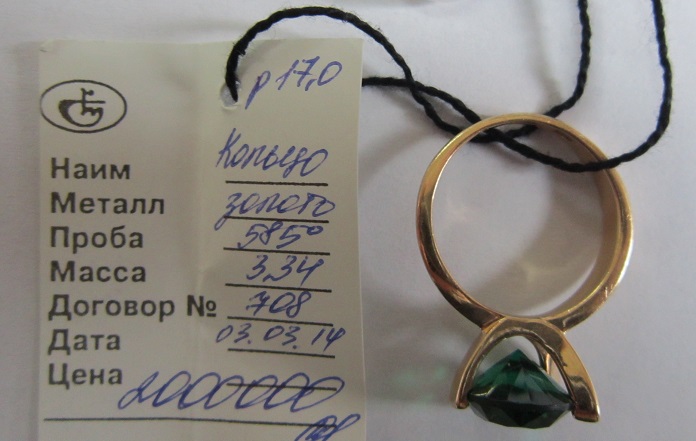 р 17,0
Наим Кольцо
Металл золото
Проба 585°
Масса 3,34
Договор № 708
Дата 03.03.14
Цена 2000000